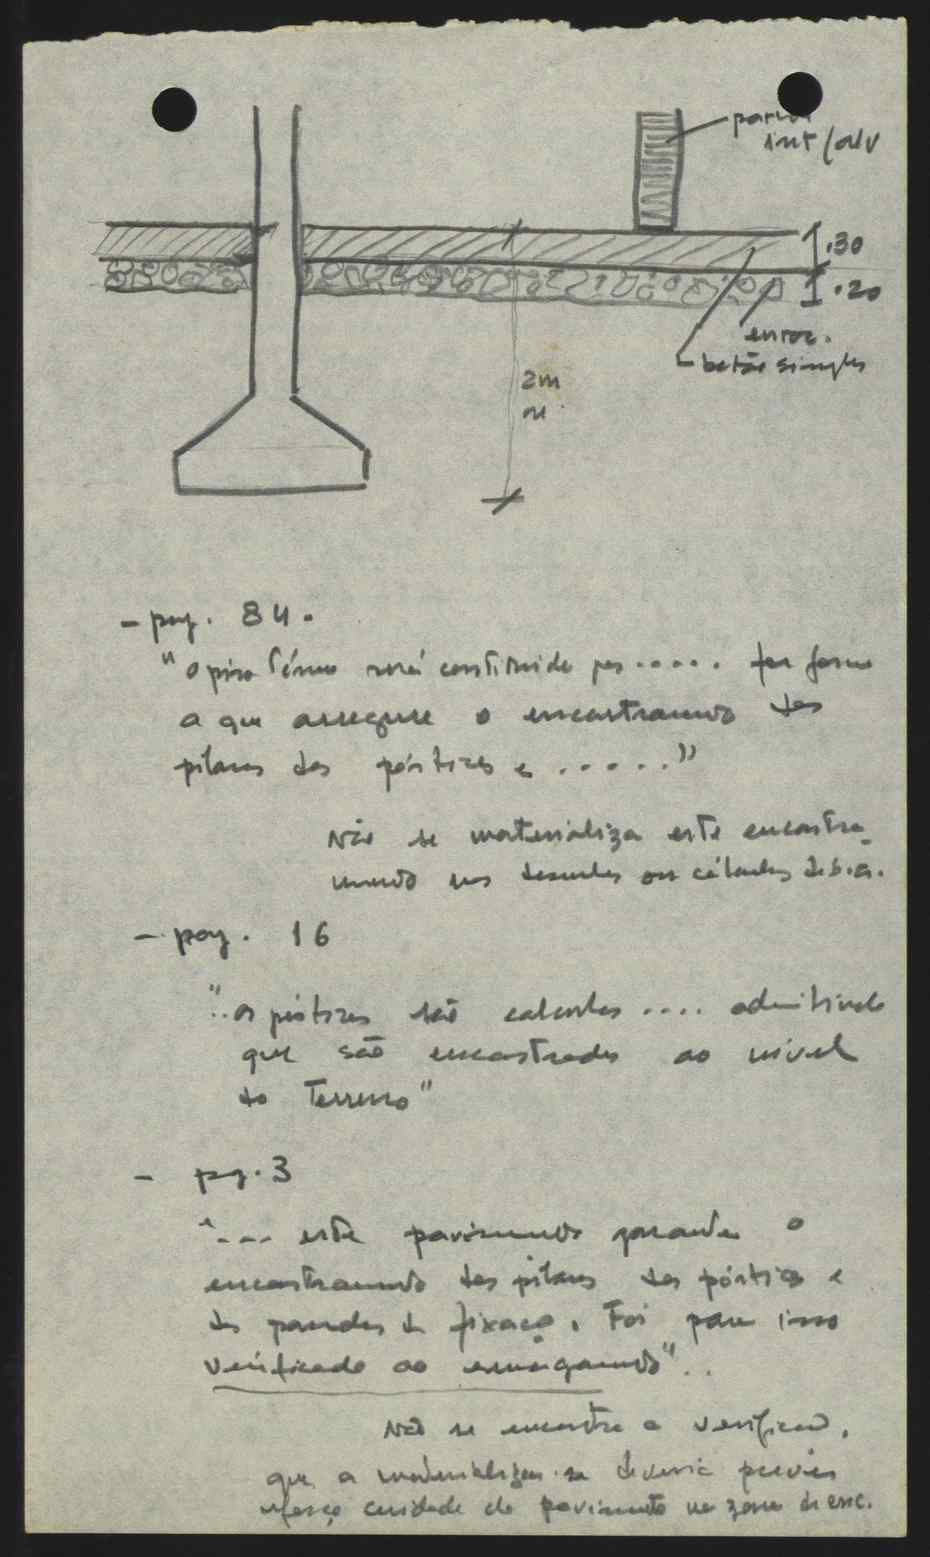 int/alv
.30
.20
enroc.
betão simples
2m
ou
- pag. 84.
"o piso térreo será constituido por ..... por forma
a que assegure o encastramento dos
pilares dos pórticos e ....."
Não se materializa este encastra
mento nos desenhos ou cálculos de b.a.
- pag. 16
".. os pórticos são calculados .... admitindo
que são encastrados ao nivel
do Terreno"
- pg. 3
"--- este pavimento garante o
encastramento dos pilares dos pórticos e
das paredes de fixação. Foi para isso
verificado ao esmagamento"..
Não se encontra a verificação,
que a materializar-se deveria prever
reforço cuidado do pavimento na zona de enc.